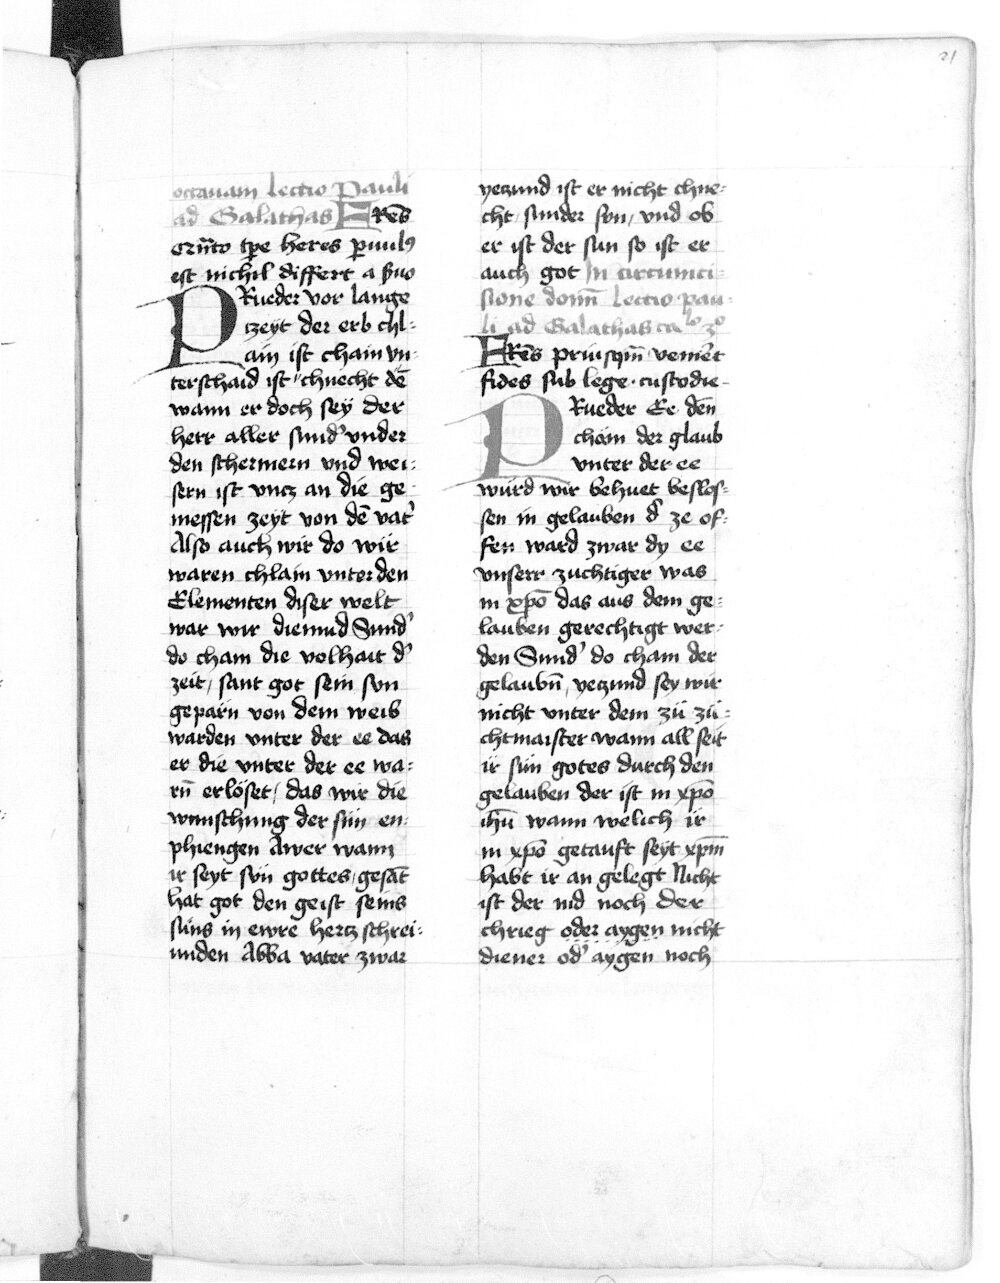 21
octauam Lectio Pauli
ad Galathas FRēs
qn̄to tpe heres puulꝰ
est nichil differt a s̄uo
PRueder vor lange
czeyt der erb chl-
ain ist chain vn-
terschaid ist / chnecht dē
wann er doch sey der
herr aller sundʼ vnder
den schermern vnd wei-
sern ist vncz an die ge-
messen zeyt von dē vatʼ
Also auch wir do wir
waren chlain vnter den
Elementen diser welt
war wir diemud Sundʼ
do cham die volhait dʼ
zeit / sant got sein sun
geparn von dem weib
warden vnter der ee das
er die vnter der ee wa-
rn̄ erlöset / das wir die
wunschung der sün en-
phiengen Awer wann
ir seyt sün gottes / gesāt
hat got den geist seins
süns in ewre hercz schrei-
unden Abba vater zwar
yeczund ist er nicht chne-
cht / sunder sun / vnd ob
er ist der sun so ist er
auch got In circumci-
sione domī Lectio pau-
li ad Galathas caᵒ 3ᵒ
FRēs priusqm̄ veniret
fides sub lege custodie-
PRueder Ee den
cham der glaub
vnter der ee
würd wir behuet beslos-
sen in gelauben dʼ ze of-
fen ward zwar dy ee
vnserr zuchtiger was
in xpō das aus dem ge-
lauben gerechtigt wer-
den Sundʼ do cham der
gelaubn̄ / yeczund sey wir
nicht vnter dem zü zü-
chtmaister wann all seit
ir sün gotes durch den
gelauben der ist in xpō
ihū wann welich ir
in xpō getauft seyt xpm̄
habt ir an gelegt Nicht
ist der iud noch der
chrieg oder aygen nicht
diener odʼ aygen noch